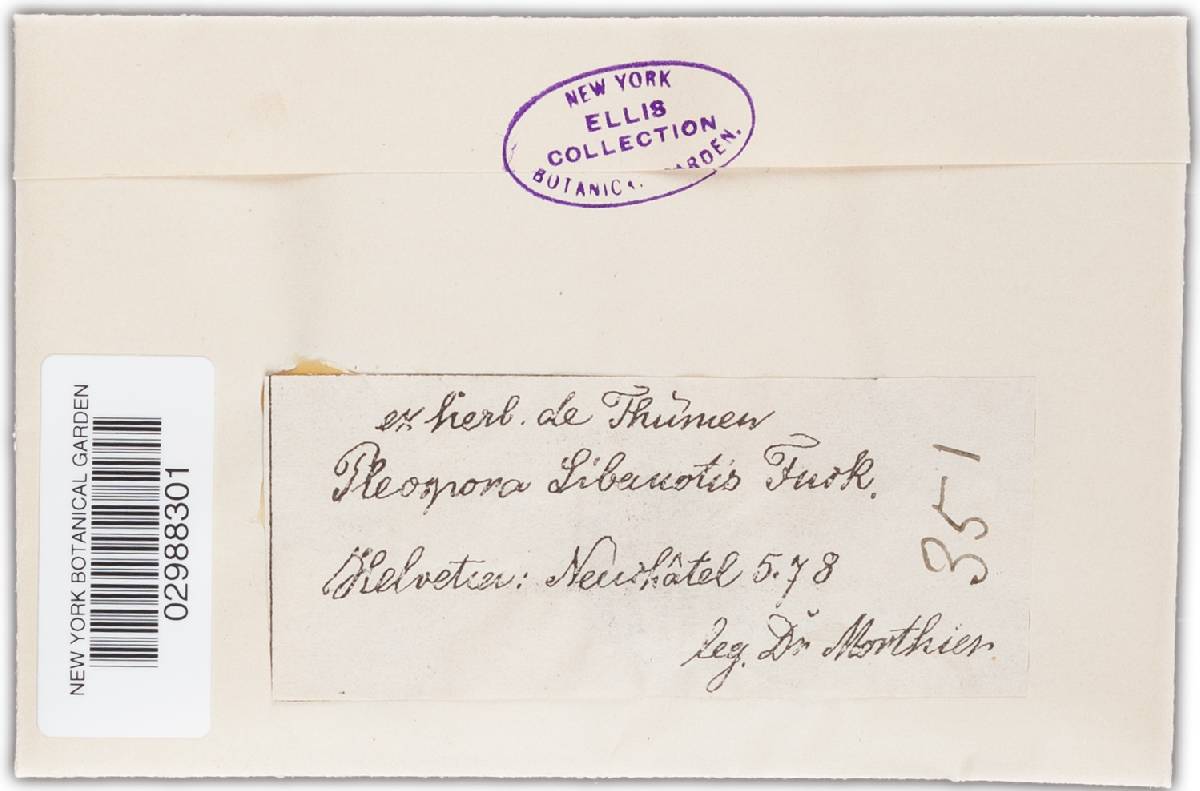 NEW YORK
ELLIS
COLLECTION
BOTANICAL GARDEN.
NEW YORK BOTANICAL GARDEN
02988301
ex herb. de Thümen
Pleospora Libanotis Fuck.
Helvetia: Neuchâtel 5.78
leg. Dr Morthier.
351